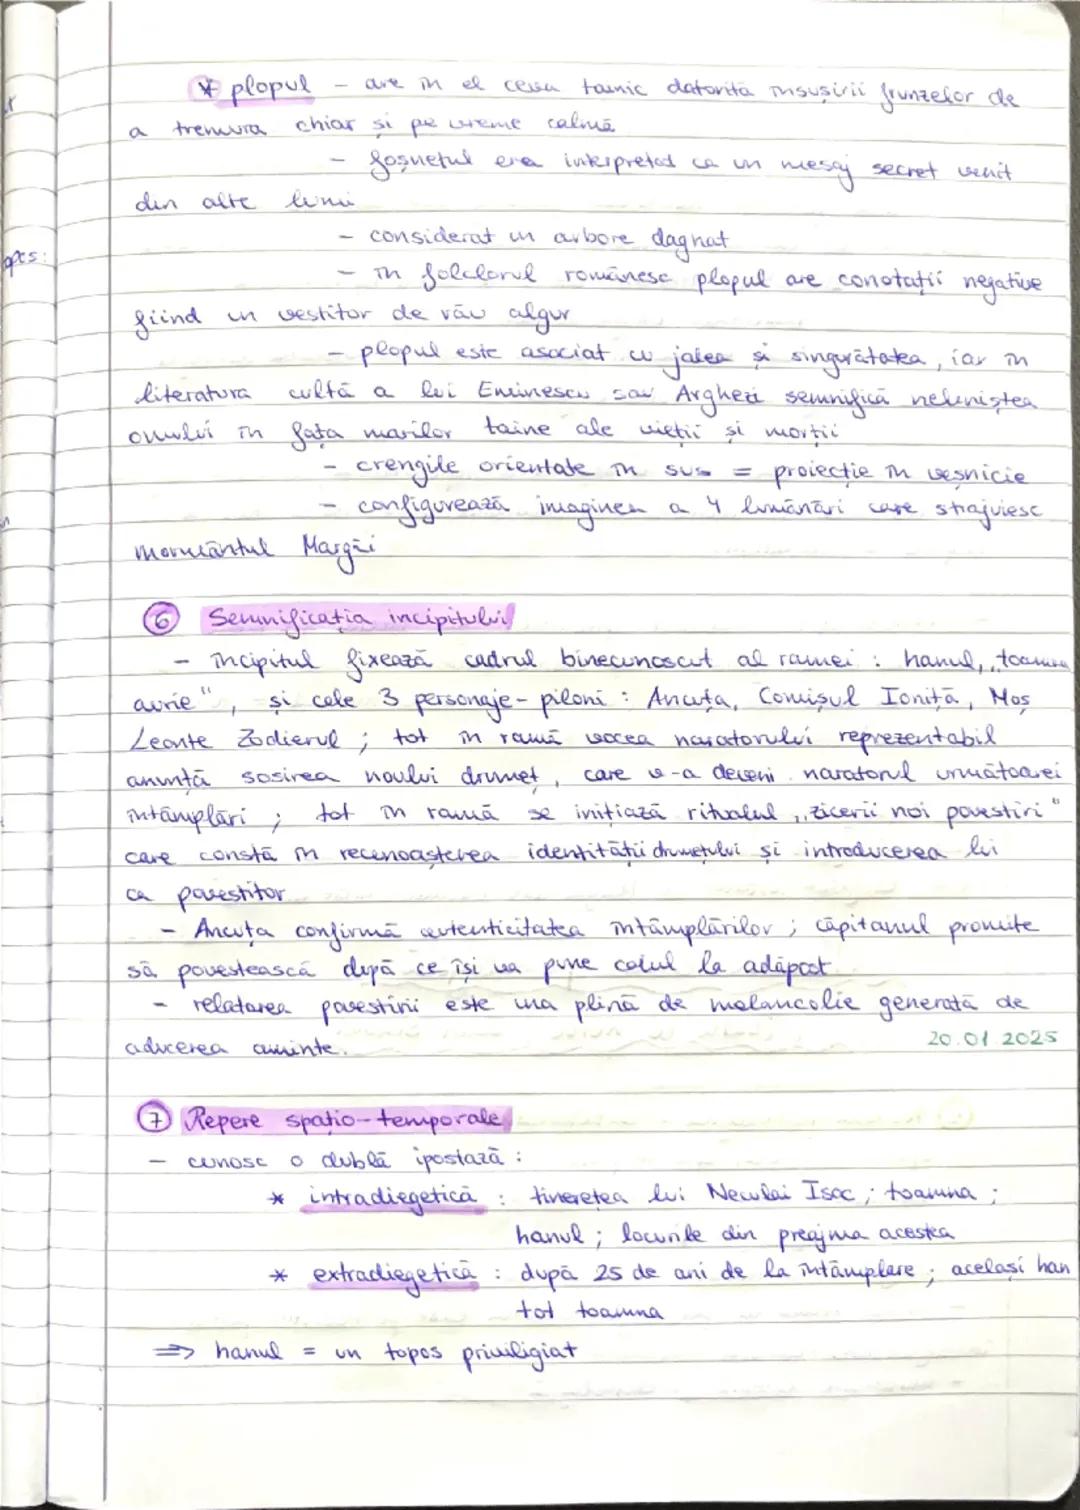 * plopul - are în el ceva tainic datorită însușirii frunzelor de
a tremura chiar și pe vreme calmă
- foșnetul era interpretat ca un mesaj secret venit
din alte lumi
- considerat un arbore dagnat
- în folclorul românesc plopul are conotații negative
fiind un vestitor de rău algur
- plopul este asociat cu jalea și singurătatea, iar în
literatura cultă a lui Eminescu sau Arghezi semnifică neliniștea
omului în fața marilor taine ale vieții și morții
- crengile orientate în sus = proiecție în veșnicie
- configurează imaginea a 4 lumânări care străjuiesc
mormântul Margăi
6 Semnificația incipitului
- incipitul fixează cadrul binecunoscut al ramei : hanul, „toamna
aurie", și cele 3 personaje-piloni : Ancuța, Comișul Ioniță, Moș
Leonte Zodierul ; tot în ramă vocea naratorului reprezentabil
anunță sosirea noului drumeț, care v-a deveni naratorul următoarei
întâmplări ; tot în ramă se inițiază ritualul „zicerii noi povestiri"
care constă în recunoașterea identității drumețului și introducerea lui
ca povestitor
- Ancuța confirmă autenticitatea întâmplărilor ; căpitanul promite
să povestească după ce își va pune calul la adăpost
- relatarea povestirii este una plină de melancolie generată de
aducerea aminte.
20.01.2025
7 Repere spațio-temporale
- cunosc o dublă ipostază :
* intradiegetică : tinerețea lui Neculai Isac ; toamna ;
hanul ; locurile din preajma acestea
* extradiegetică : după 25 de ani de la întâmplare ; același han
tot toamna
=> hanul = un topos priviligiat